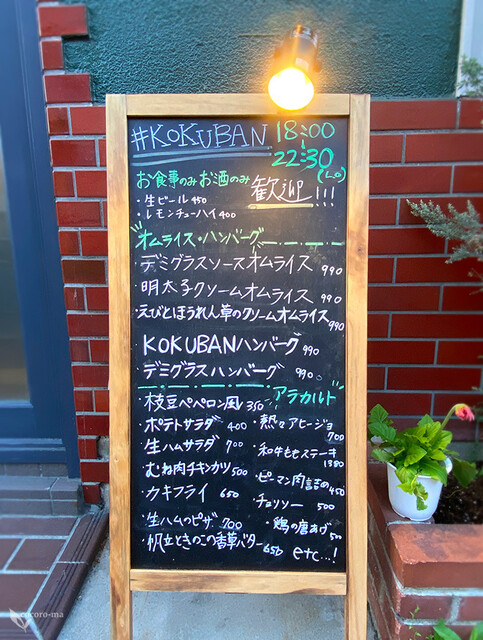 #KOKUBAN 18:00
22:30 (L.O)
お食事のみお酒のみ 歓迎!!!
・生ビール 450
・レモンチューハイ 400
オムライス・ハンバーグ
・デミグラスソースオムライス 990
・明太子クリームオムライス 990
・えびとほうれん草のクリームオムライス 990
・KOKUBANハンバーグ 990
・デミグラスハンバーグ 990
アラカルト
・枝豆ペペロン風 350
・ポテトサラダ 400 ・熱々アヒージョ 700
・生ハムサラダ 700 ・和牛ももステーキ 1380
・むね肉チキンカツ 500 ・ピーマン肉詰め 450
・カキフライ 650 ・チョリソー 500
・生ハムのピザ 700 ・鶏の唐あげ 500
・帆立ときのこの香草バター 650 etc...!
cocoro-ma